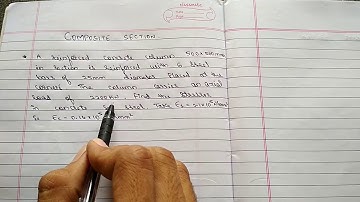 COMPOSITE SECTION
A reinforced concrete column 500 x 500 mm
in section is reinforced with 6 steel
bars of 25mm diameter placed at the
corners. The column carries an axial
load of 2200 KN. Find the stresses
in concrete steel. Take
Ec = 0.14 x 10